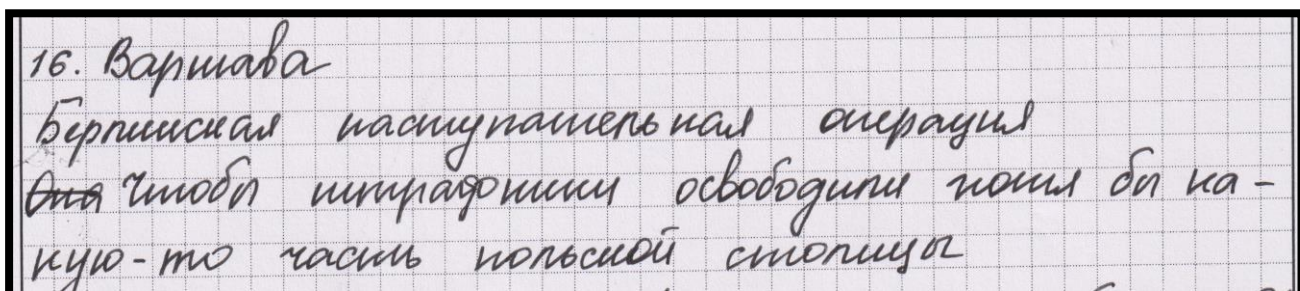 16. Варшава
Берлинская наступательная операция
Она Чтобы штрафники освободили хотя бы ка-
кую-то часть польской столицы